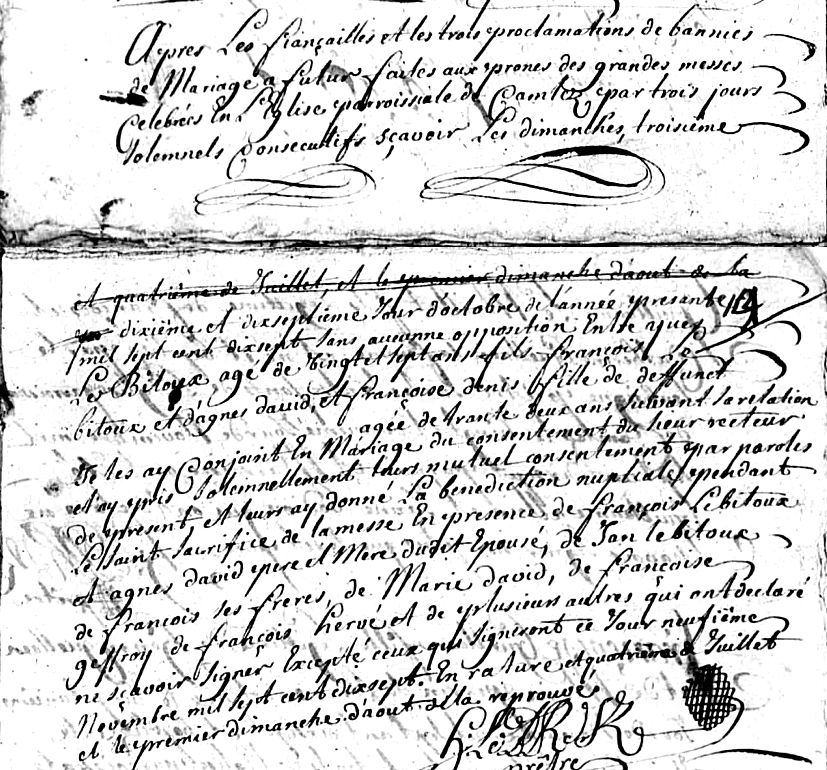 Apres Les fiançailles et les trois proclamations de bannies
de Mariage a futur faites aux prones des grandes messes
Celebrées En L'Eglise parroissiale de Camlez par trois jours
solemnels Consecutifs sçavoir Les dimanches, troisième
et quatrième de Juillet, et le premier dimanche d'aout de la
dixième et dixseptième Jour d'octobre de l'année presante
mil sept cent dixsept sans aucunne opposition Entre yves
Le Bitoux agé de vingt et sept ans fils françois Le
bitoux et d'agnes david, et françoise denis fille de deffunct
agée de trante deux ans suivant la relation
Je les ay Conjoint En Mariage du consentement du sieur recteur
et ay pris solemnellement leurs mutuel consentement par paroles
de present et leurs ay donné La benediction nuptiale, pendant
Le saint sacrifice de la messe En presence de françois Le bitoux
et agnes david pere et Mere dudit Epousé, de Jan le bitoux
de françois ses freres, de Marie david, de françoise
geffroy de françois hervé et de plusieurs autres qui ont declaré
ne sçavoir signer Excepté ceux qui signeront ce Jour neufième
Novembre mil sept cent dixsept. En rature et quatrième de Juillet
et le premier dimanche d'aout de la reprouvé
prêtre